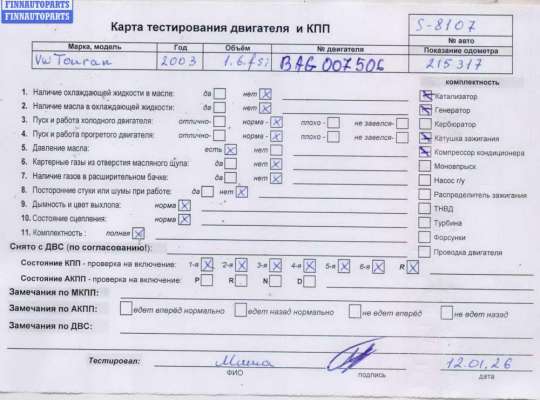 FINNAUTOPARTS
FINNAUTOPARTS
Карта тестирования двигателя и КПП
S-8107
№ авто
Марка, модель Год Объём № двигателя Показание одометра
Vw Touran 2003 1.6 fsi BAG 007506 215317
комплектность
1. Наличие охлаждающей жидкости в масле: да нет X
2. Наличие масла в охлаждающей жидкости: да нет X
3. Пуск и работа холодного двигателя: отлично- норма - X плохо - не завелся-
4. Пуск и работа прогретого двигателя: отлично- норма - X плохо - не завелся-
5. Давление масла: есть X нет
6. Картерные газы из отверстия масляного щупа: да нет X
7. Наличие газов в расширительном бачке: да нет X
8. Посторонние стуки или шумы при работе: да нет X
9. Дымность и цвет выхлопа: норма X
10. Состояние сцепления: норма X
11. Комплектность : полная X
X Катализатор
X Генератор
Карбюратор
X Катушка зажигания
X Компрессор кондиционера
Моновпрыск
Насос г/у
Распределитель зажигания
ТНВД
Турбина
Форсунки
Проводка двигателя
Снято с ДВС (по согласованию!):
Состояние КПП - проверка на включение: 1-я X 2-я X 3-я X 4-я X 5-я X 6-я X R X
Состояние АКПП - проверка на включение: P R N D
Замечания по МКПП:
Замечания по АКПП: едет вперёд нормально едет назад нормально не едет вперёд не едет назад
Замечания по ДВС:
Тестировал: Миша 12.01.26
ФИО подпись дата